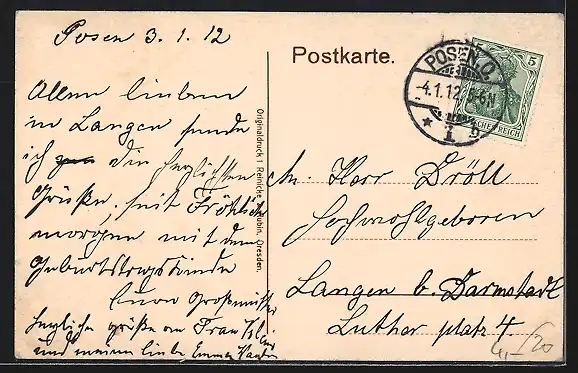 Posen 3.1.12
Postkarte.
POSEN.O.
-4.1.12. 8-9N
* 1 b
5
DEUTSCHES REICH
Allen lieben
in Langen sende
ich die herzlichsten
Grüße. seit Fröhliche
morgen mit dem
Geburtstagskinde
Eure Großmutter
herzliche grüße an Frau
und meine liebe Emma
Originaldruck Reinicke & Rubin, Dresden.
An Herr Dröll
Hochwohlgeboren
Langen b. Darmstadt
Luther platz 4.
4,-/20